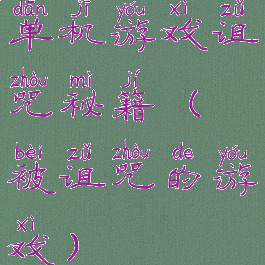 dān jī yóu xì zǔ
单机游戏诅
zhòu mì jí
咒秘籍（
bèi zǔ zhòu de yóu
被诅咒的游
xì
戏）